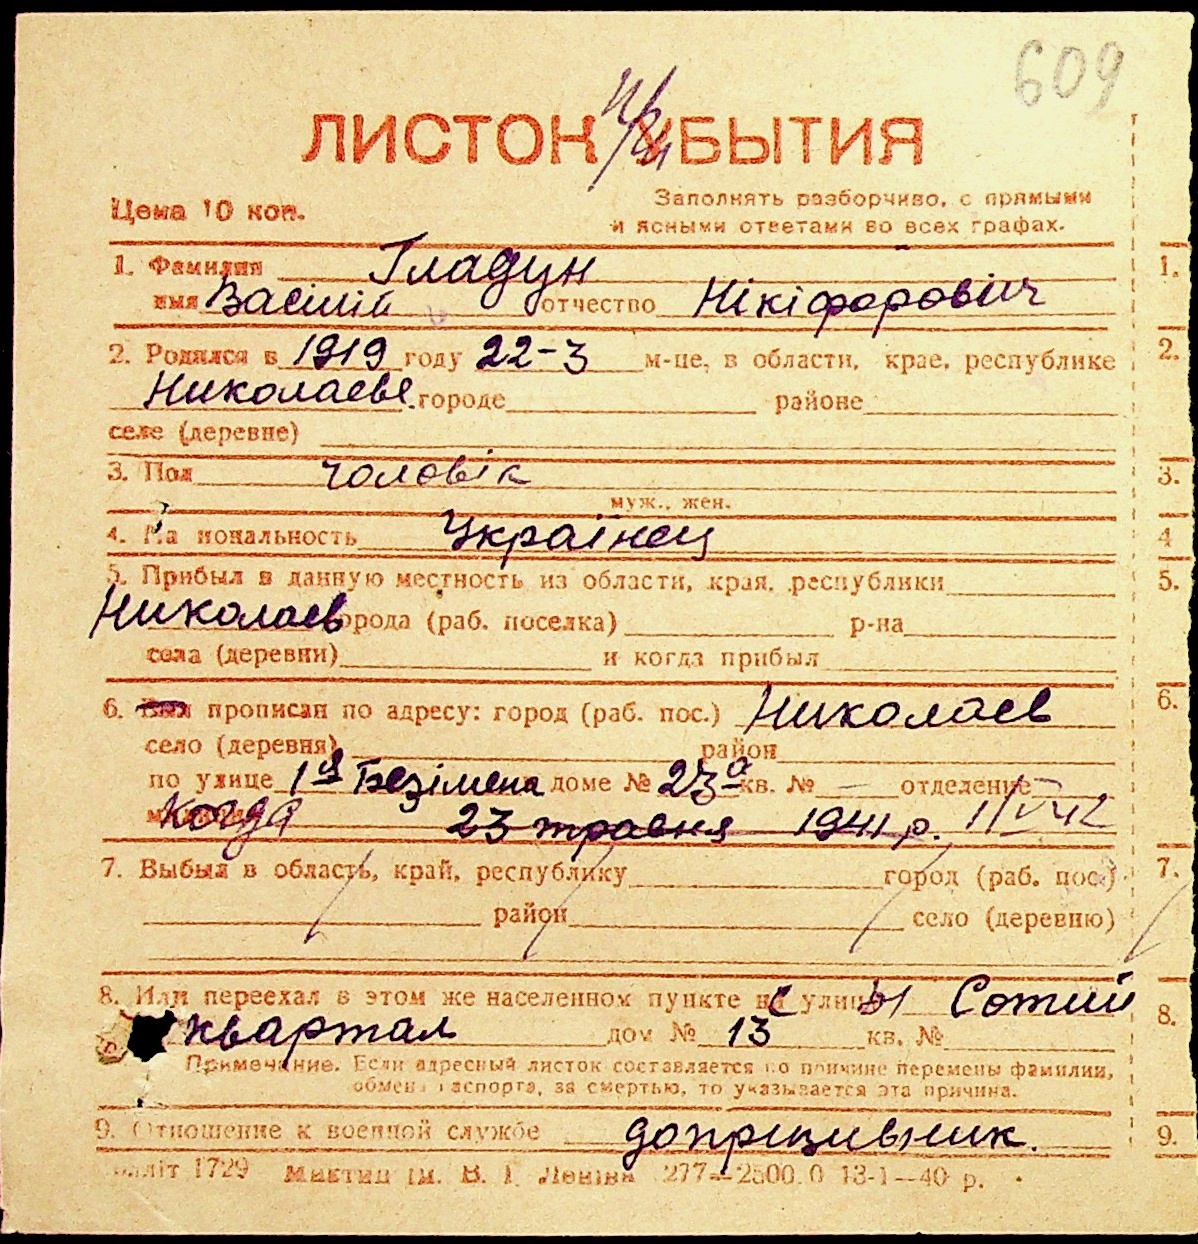 609
ЛИСТОК УБЫТИЯ
Цена 10 коп.
Заполнять разборчиво, с прямыми
и ясными ответами во всех графах.
1. Фамилия Гладун 1.
имя Васілій отчество Нікіфоровіч
2. Родился в 1919 году 22-3 м-це, в области, крае, республике 2.
Николаеве городе районе
селе (деревне)
3. Пол чоловік 3.
муж., жен.
4. Национальность Українец 4
5. Прибыл в данную местность из области, края, республики 5.
Николаев города (раб. поселка) р-на
села (деревни) и когда прибыл
6. Был прописан по адресу: город (раб. пос.) Николаев 6.
село (деревня) район
по улице 1я Безімена доме № 23а кв. № — отделение
когда 23 травня 1941 р. 1/V 42
7. Выбыл в область, край, республику город (раб. пос.) 7.
район село (деревню)
8. Или переехал в этом же населенном пункте с улицы Сотий 8.
квартал дом № 13 кв. №
Примечание. Если адресный листок составляется по причине перемены фамилии,
обмена паспорта, за смертью, то указывается эта причина.
9. Отношение к военной службе допрцивник. 9.
1729 ім. В. І. Леніна 277—2500.0 13-1—40 р.